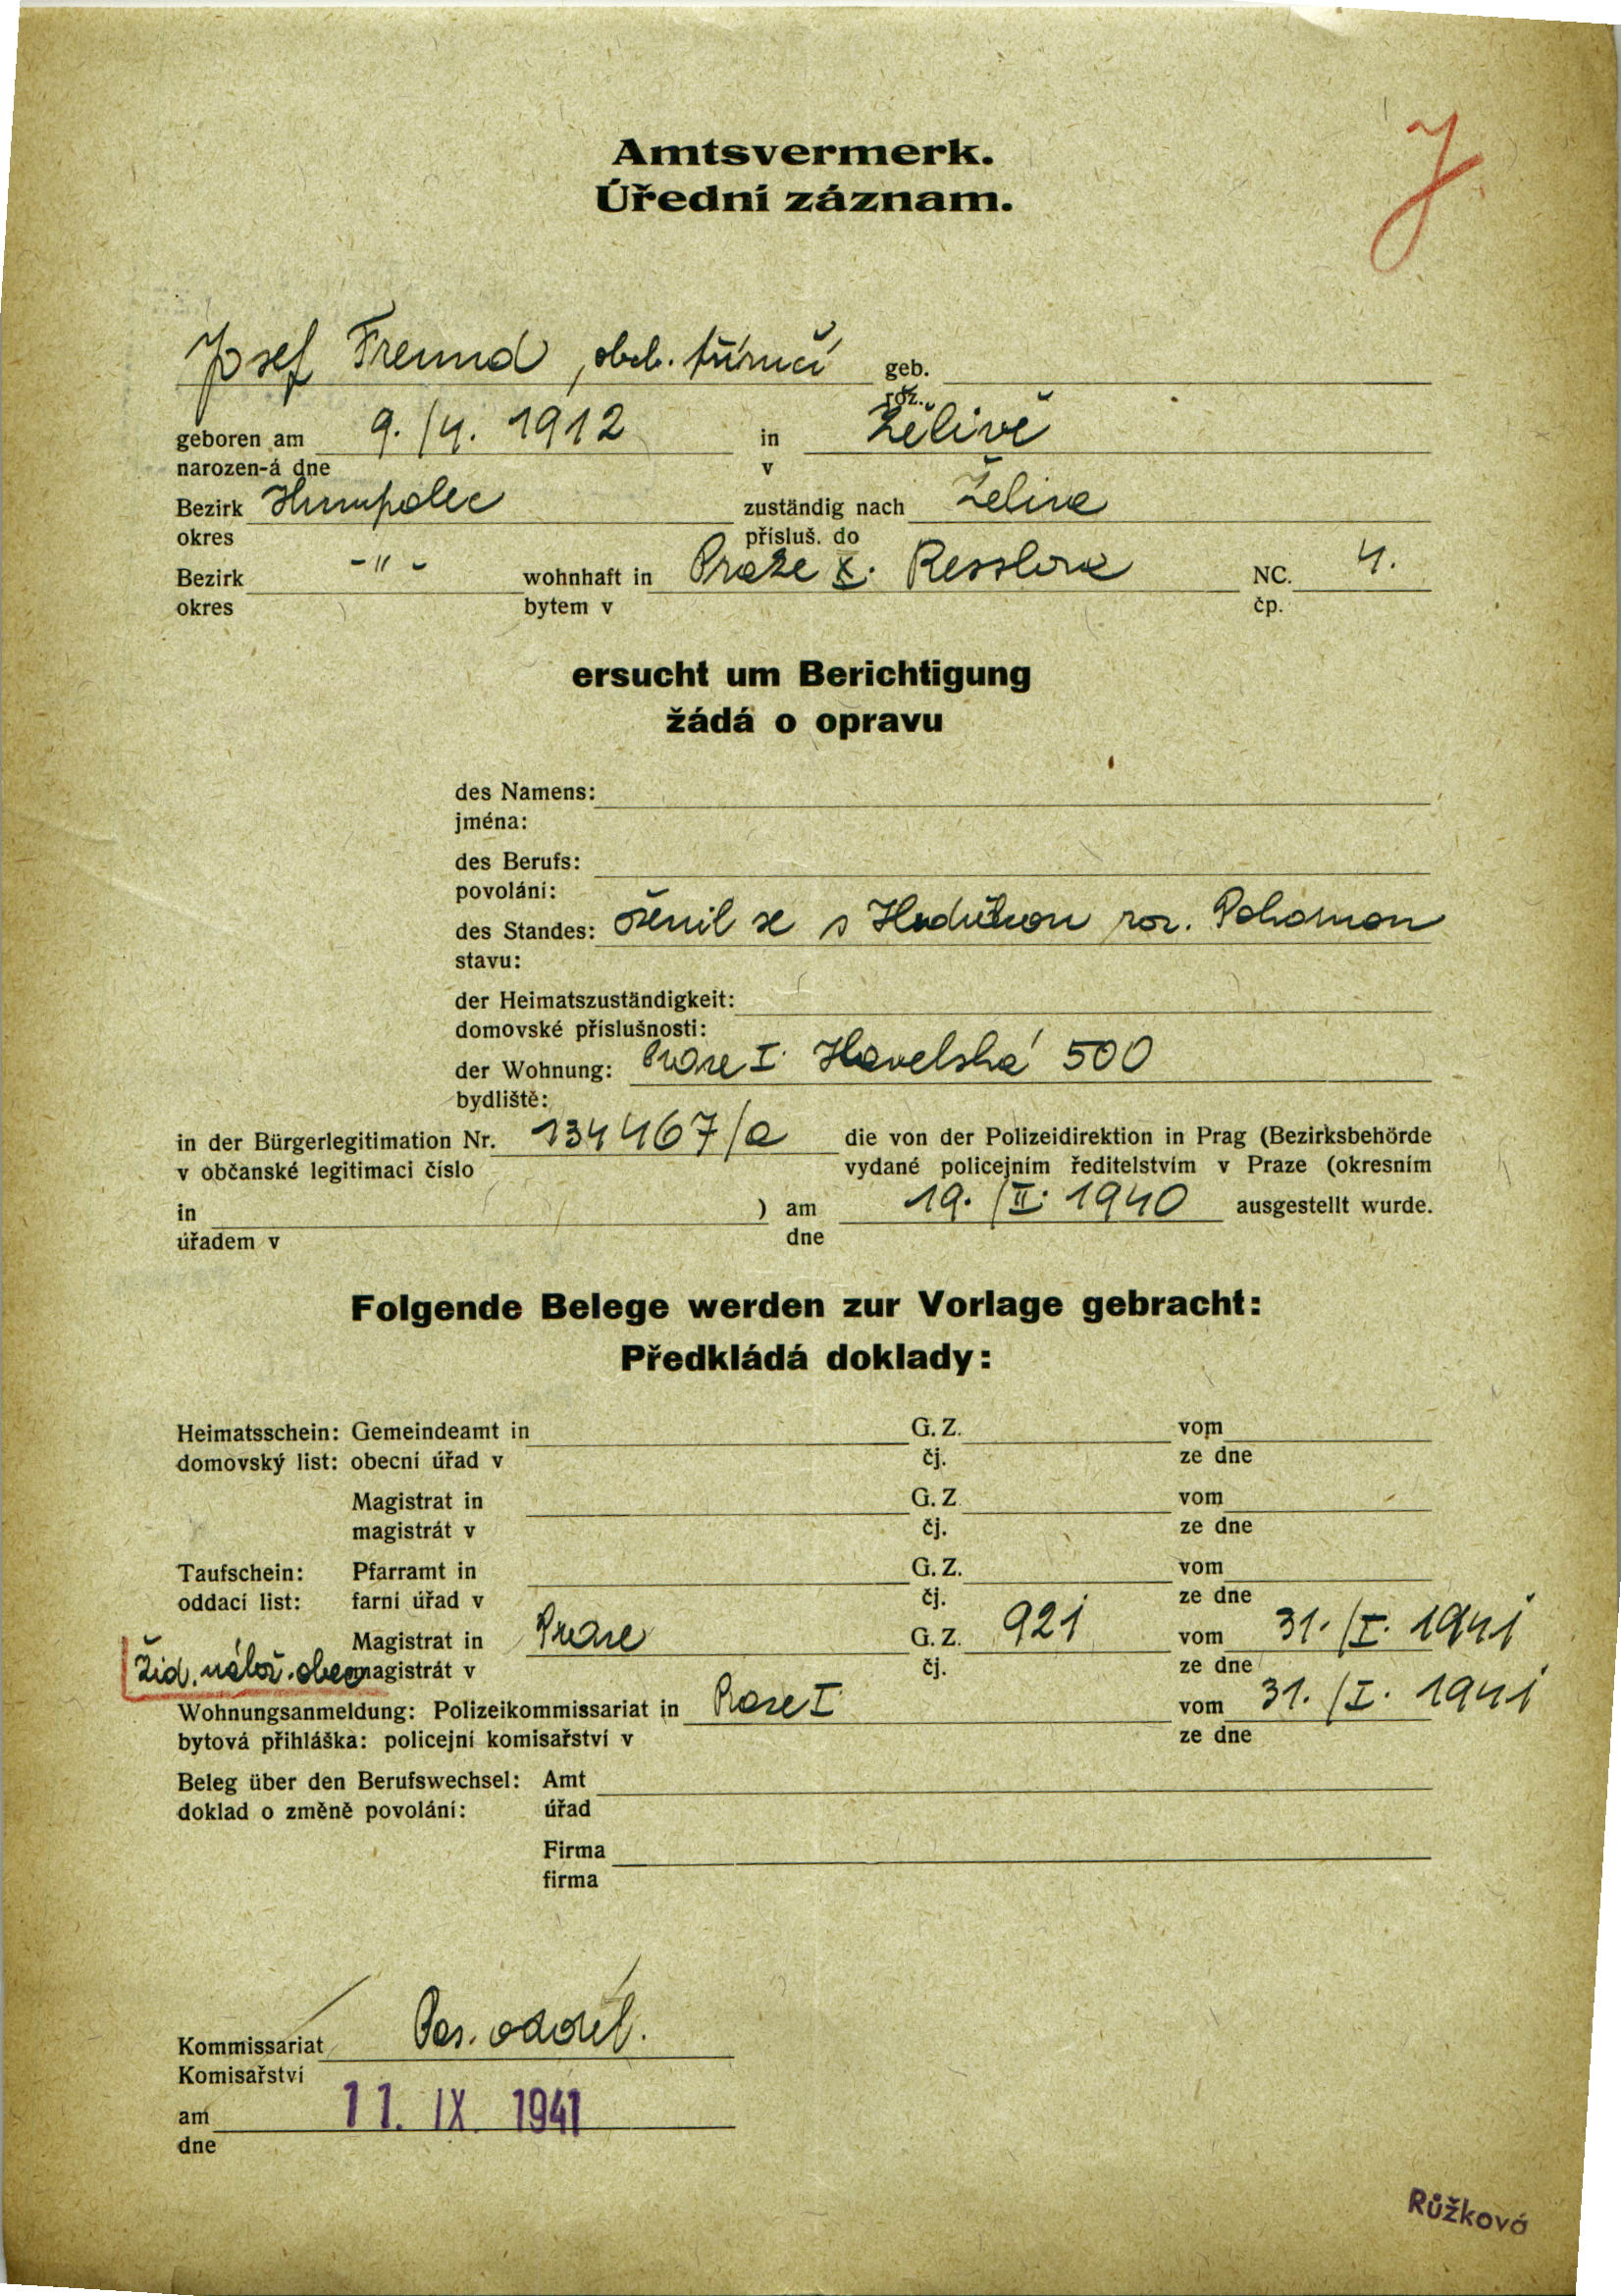 J
Amtsvermerk.
Úřední záznam.
Josef Freund, obch. geb.
roz.
geboren am 9./4. 1912 in Želivě
narozen-á dne v
Bezirk Humpolec zuständig nach Želiva
okres přísluš. do
Bezirk -"- wohnhaft in Praze X. Resslova NC. 4.
okres bytem v čp.
ersucht um Berichtigung
žádá o opravu
des Namens:
jména:
des Berufs:
povolání:
des Standes: oženil se s roz.
stavu:
der Heimatszuständigkeit:
domovské příslušnosti:
der Wohnung: Praze I. Havelská 500
bydliště:
in der Bürgerlegitimation Nr. 134467/a die von der Polizeidirektion in Prag (Bezirksbehörde
v občanské legitimaci číslo vydané policejním ředitelstvím v Praze (okresním
in ) am 19./II. 1940 ausgestellt wurde.
úřadem v dne
Folgende Belege werden zur Vorlage gebracht:
Předkládá doklady:
Heimatsschein: Gemeindeamt in G. Z. vom
domovský list: obecní úřad v čj. ze dne
Magistrat in G. Z vom
magistrát v čj. ze dne
Taufschein: Pfarramt in G. Z. vom
oddací list: farní úřad v čj. ze dne
Magistrat in Praze G. Z. 921 vom 31./I. 1941
Žid. nábož. obec magistrát v čj. ze dne
Wohnungsanmeldung: Polizeikommissariat in Praze I vom 31./I. 1941
bytová přihláška: policejní komisařství v ze dne
Beleg über den Berufswechsel: Amt
doklad o změně povolání: úřad
Firma
firma
Kommissariat Pas. odděl.
Komisařství
am 11. IX 1941
dne
Růžková